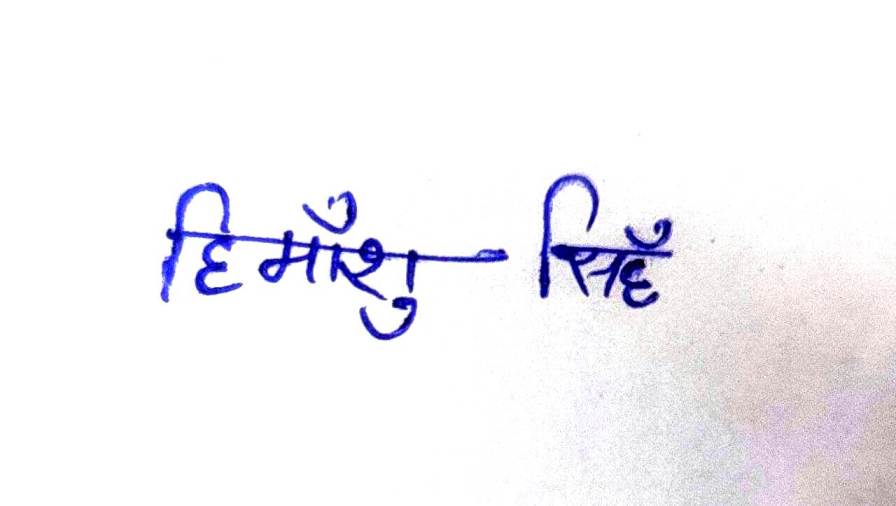 हिमाँशु सिहँ